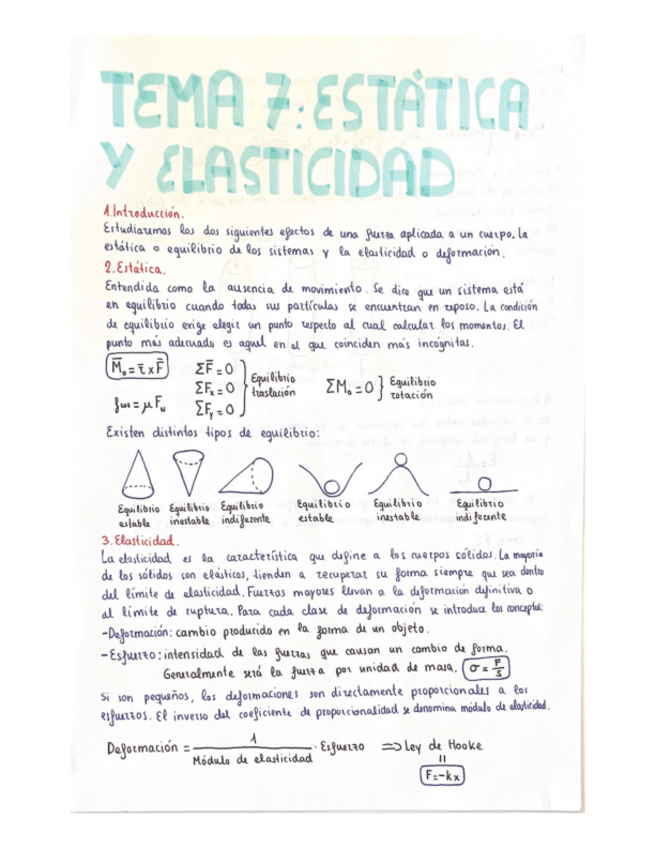 TEMA 7: ESTÁTICA
Y ELASTICIDAD
1. Introducción.
Estudiaremos los dos siguientes efectos de una fuerza aplicada a un cuerpo. La
estática o equilibrio de los sistemas y la elasticidad o deformación.
2. Estática.
Entendida como la ausencia de movimiento. Se dice que un sistema está
en equilibrio cuando todas sus partículas se encuentran en reposo. La condición
de equilibrio exige elegir un punto respecto al cual calcular los momentos. El
punto más adecuado es aquel en el que coinciden más incógnitas.
M̄₀ = r̄ x F̄
ΣF̄ = 0
ΣFₓ = 0
ΣFᵧ = 0
Equilibrio
traslación
ΣM₀ = 0
Equilibrio
rotación
= μ Fₙ
Existen distintos tipos de equilibrio:
Equilibrio estable
Equilibrio inestable
Equilibrio indiferente
Equilibrio estable
Equilibrio inestable
Equilibrio indiferente
3. Elasticidad.
La elasticidad es la característica que define a los cuerpos sólidos. La mayoría
de los sólidos son elásticos, tienden a recuperar su forma siempre que sea dentro
del límite de elasticidad. Fuerzas mayores llevan a la deformación definitiva o
al límite de ruptura. Para cada clase de deformación se introduce los conceptos:
-Deformación: cambio producido en la forma de un objeto.
-Esfuerzo: intensidad de las fuerzas que causan un cambio de forma.
Generalmente será la fuerza por unidad de masa. σ = F/S
Si son pequeños, las deformaciones son directamente proporcionales a los
esfuerzos. El inverso del coeficiente de proporcionalidad se denomina módulo de elasticidad.
Deformación = 1 / Módulo de elasticidad · Esfuerzo => Ley de Hooke
=
F=-kx